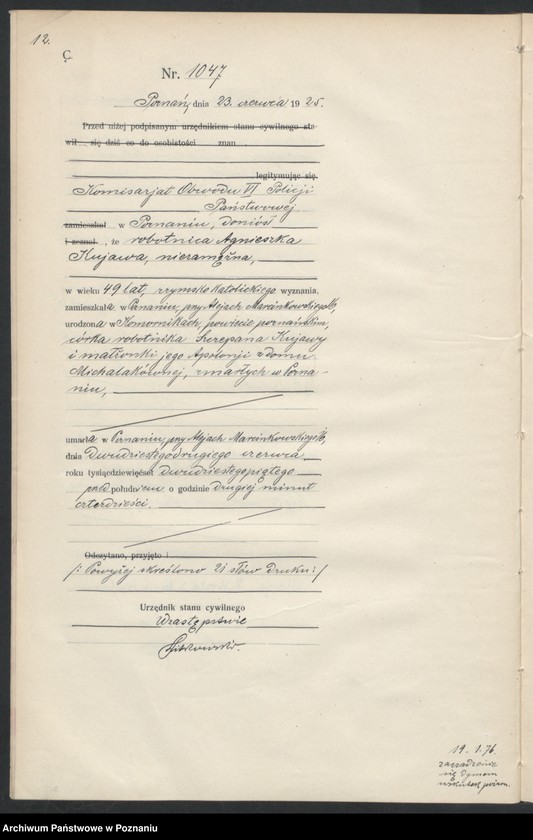 12.
C.
Nr. 1047
Poznań, dnia 23. czerwca 1925.
Przed niżej podpisanym urzędnikiem stanu cywilnego sta-
wił się dziś co do osobistości znan
legitymując się
Komisarjat Obwodu VI Policji
Państwowej
zamieszkał w Poznaniu, doniósł
i zeznał, że robotnica Agnieszka
Kujawa, niezamężna,
w wieku 49 lat, rzymsko katolickiego wyznania,
zamieszkała w Poznaniu, przy Alejach Marcinkowskiego
urodzona w Komornikach, powiecie poznańskim,
córka robotnika Szczepana Kujawy
i małżonki jego Apolonji z domu
Michalakównej, zmarłych w Pozna-
niu,
umarła w Poznaniu, przy Alejach Marcinkowskiego
dnia Dwudziestegodrugiego czerwca
roku tysiącdziewięćset dwudziestegopiątego
przed południem o godzinie drugiej minut
czterdzieści.
Odczytano, przyjęto i
/: Powyżej skreślono 21 słów druku :/
Urzędnik stanu cywilnego
W zastępstwie
19. 1. 76.
Archiwum Państwowe w Poznaniu